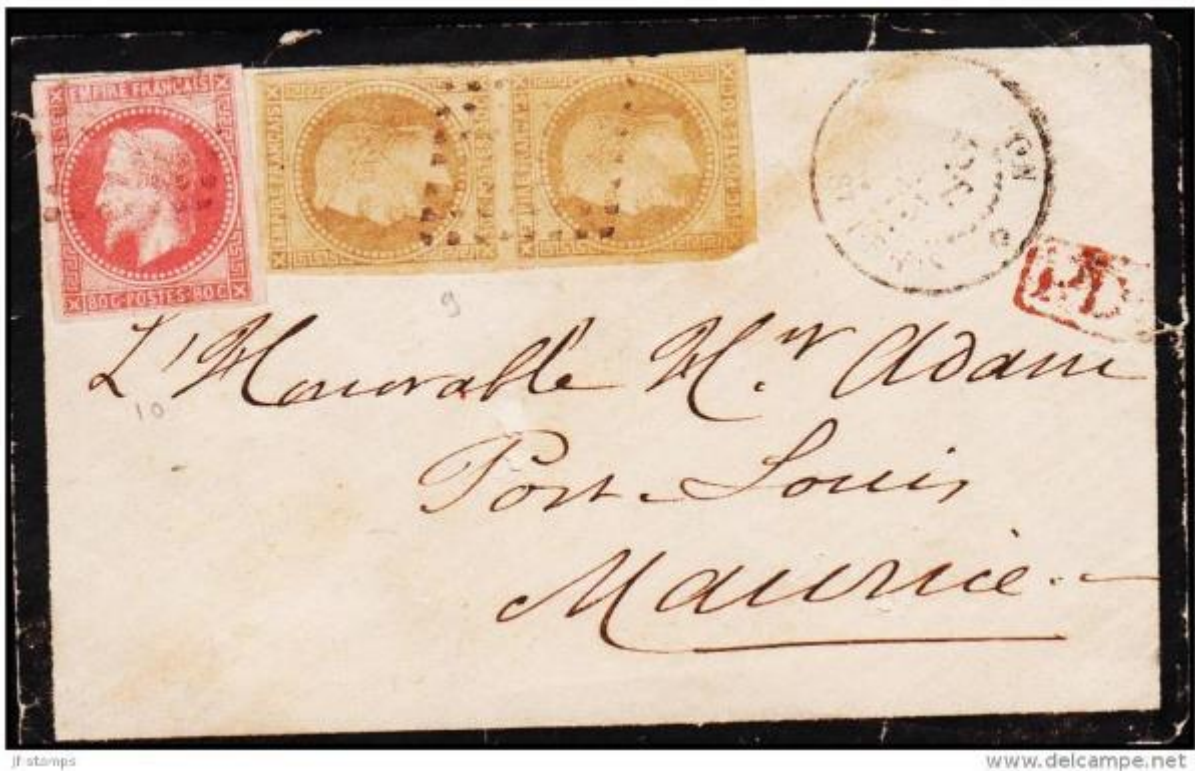 EMPIRE FRANÇAIS
80C·POSTES·80C
EMPIRE FRANÇAIS
EMPIRE FRANÇAIS
PD
9
L'Honorable Mr Adam
10
Port Louis
Maurice.
jf stamps
www.delcampe.net